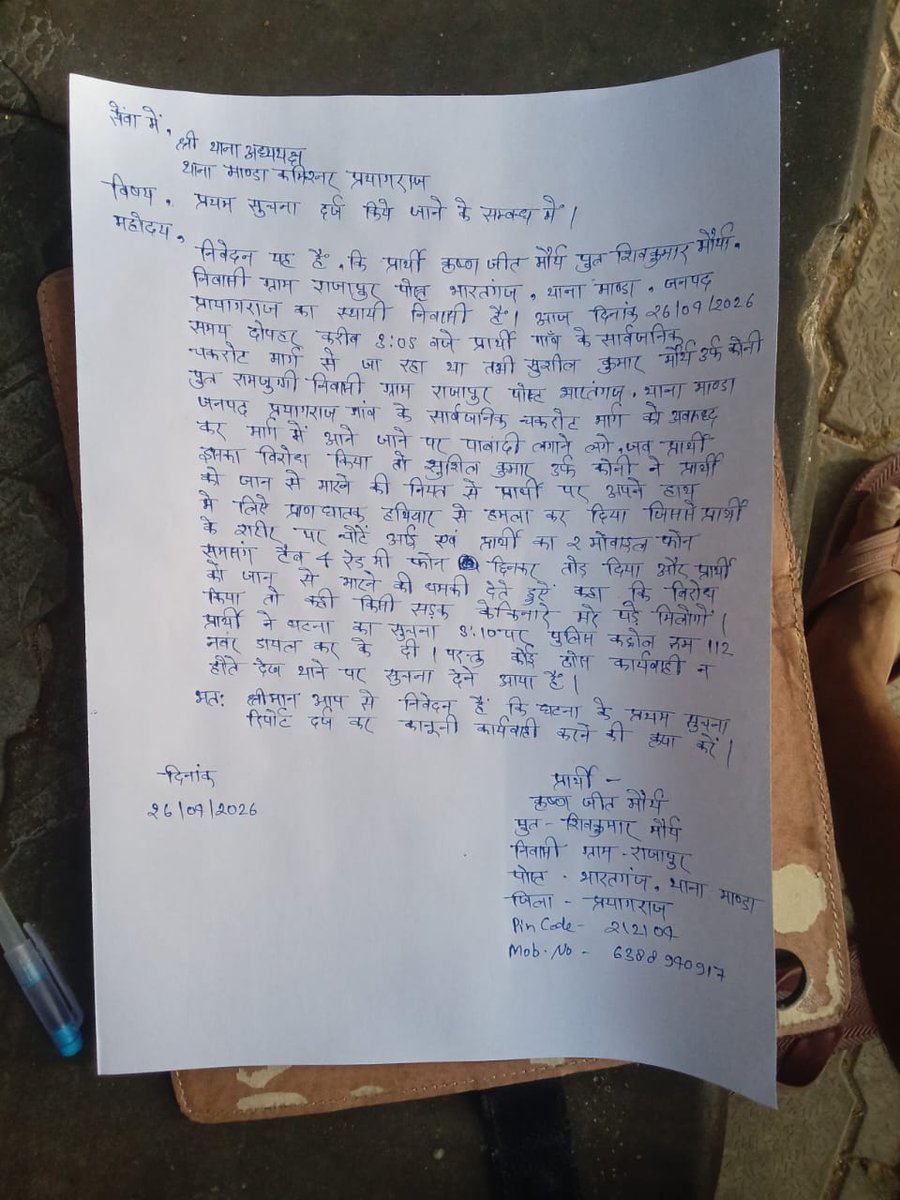 सेवा में,
श्री थाना अध्यक्ष
थाना माण्डा कमिश्नर प्रयागराज
विषय, प्रथम सुचना दर्ज किये जाने के सम्बन्ध में।
महोदय,
निवेदन यह है, कि प्रार्थी कृष्ण जीत मौर्य पुत्र शिवकुमार मौर्या,
निवासी ग्राम राजापुर पोस्ट भारतगंज, थाना माण्डा, जनपद
प्रायागराज का स्थायी निवासी है। आज दिनांक 26/07/2026
समय दोपहर करीब 3:05 बजे प्रार्थी गाँव के सार्वजनिक
चकरोट मार्ग से जा रहा था तभी सुशील कुमार मौर्य उर्फ कोनी
पुत्र निवासी ग्राम राजापुर पोस्ट भारतगंज, थाना माण्डा
जनपद प्रयागराज गांव के सार्वजनिक चकरोट मार्ग को अवरुद्ध
कर मार्ग में आने जाने पर पाबादी लगाने लगे, जब प्रार्थी
इसका विरोध किया तो सुशिल कुमार उर्फ कोनी ने प्रार्थी
को जान से मारने की नियत से प्रार्थी पर अपने हाथ
मे लिए प्राण घातक हथियार से हमला कर दिया जिससे प्रार्थी
के शरीर पर चोटें आई एवं प्रार्थी का 2 मोबाइल फोन
टैब 4 रेड मी फोन छिनकर तोड़ दिया और प्रार्थी
को जान से मारने की धमकी देते हुऐ कहा कि विरोध
किया तो कही किसी सड़क के किनारे मरे पड़े मिलोगे।
प्रार्थी ने घटना का सुचना 3:10 पर पुलिस कट्रोल रूम 112
नबर डायल कर के दी। परन्तु कोई ठोस कार्यवाही न
होते देख थाने पर सुचना देने आया है।
अतः श्रीमान आप से निवेदन है कि घटना के प्रथम सुचना
रिपोर्ट दर्ज कर कानूनी कार्यवाही करने की कृपा करें।
दिनांक
26/07/2026
प्रार्थी -
कृष्ण जीत मौर्य
पुत्र - शिवकुमार मौर्य
निवासी ग्राम - राजापुर
पोस्ट - भारतगंज, थाना माण्डा
जिला - प्रयागराज
Pin Code - 212104
Mob. No -